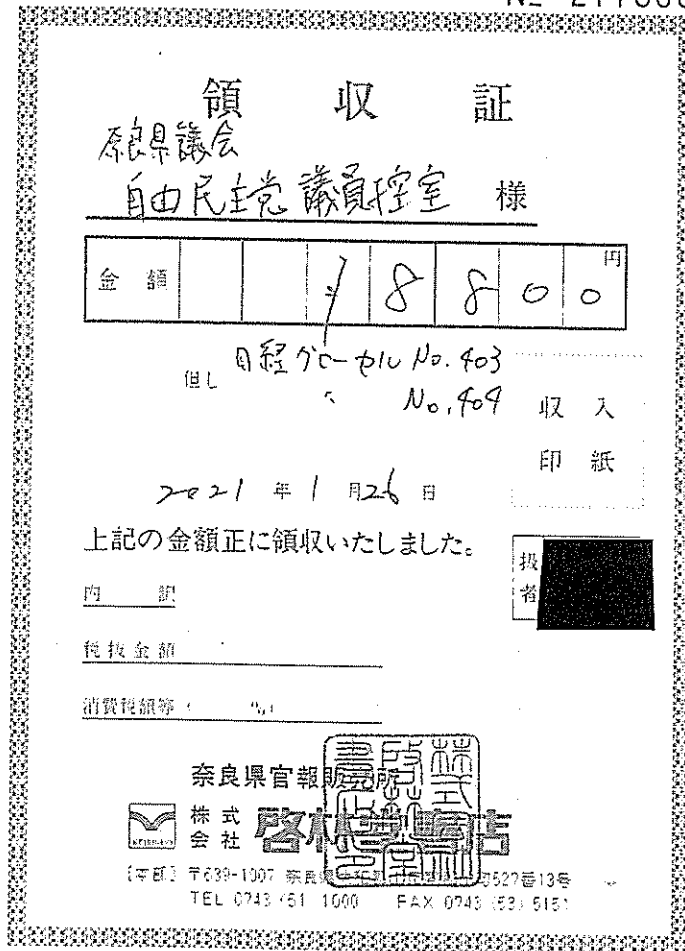 領収証
奈良県議会
自由民主党 議員控室 様
金額 ¥8800円
但し 日経グローカル No.403
〃 No.404
収入
印紙
2021年1月26日
上記の金額正に領収いたしました。
扱者
内訳
税抜金額
消費税額等 ( %)
奈良県官報販売所
株式会社 啓林堂書店
〒639-1007
TEL 0743 (51) 1000 FAX 0743 (53) 5151